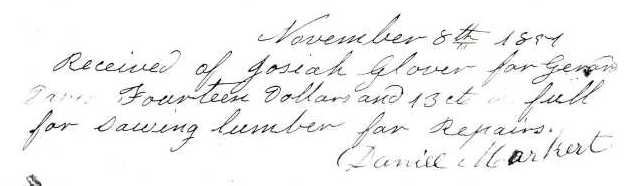 November 8th 1851
Received of Josiah Glover for
Fourteen Dollars and 13 ct full
for Sawing lumber for Repairs.
Daniel Markert